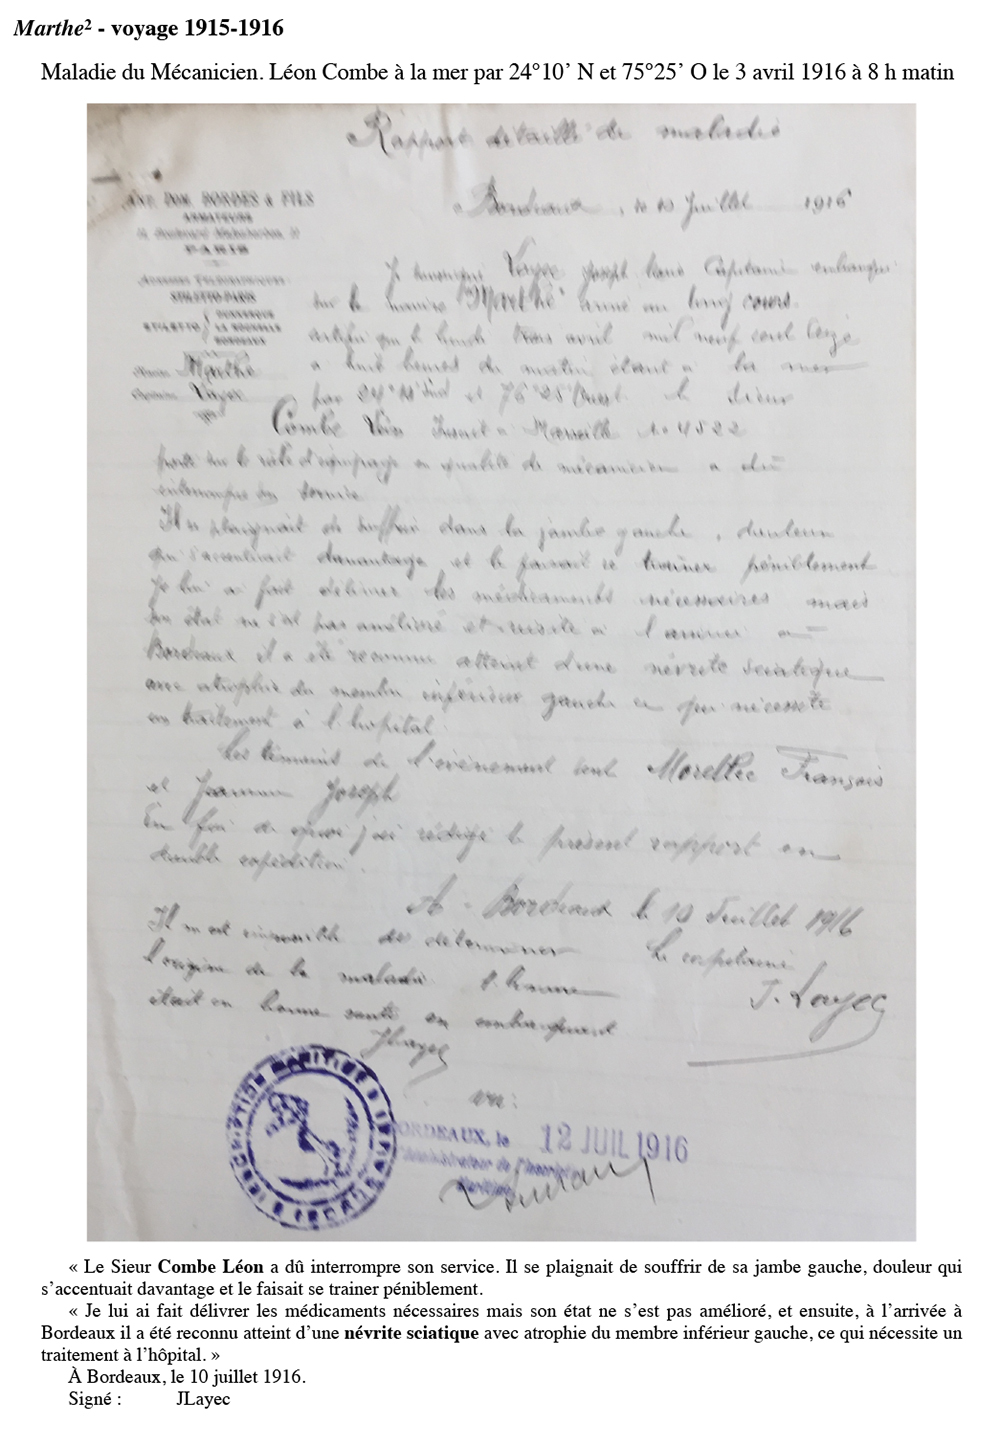 Marthe² - voyage 1915-1916
Maladie du Mécanicien. Léon Combe à la mer par 24°10’ N et 75°25’ O le 3 avril 1916 à 8 h matin
Rapport détaillé de maladie
Bordeaux, le 10 Juillet 1916
ANT. DOM. BORDES & FILS
ARMATEURS
PARIS
STILETTO-PARIS
DUNKERQUE
STILETTO LA ROCHELLE
BORDEAUX
Marthe
Capitaine Layec
Je soussigné Layec Joseph Louis Capitaine embarqué
sur le navire "Marthe" armé au long cours.
certifie que le lundi trois avril mil neuf cent seize
à huit heures du matin étant à la mer
par 24° Sud et 75°25' Ouest le sieur
Combe Léon Inscrit à Marseille No 4822
porté sur le rôle d'équipage en qualité de mécanicien a dû
interrompre son service
Il se plaignait de souffrir dans la jambe gauche, douleur
qui s'accentuait davantage et le faisait se trainer péniblement
Je lui ai fait délivrer les médicaments nécessaires mais
son état ne s'est pas amélioré et ensuite à l'arrivée à
Bordeaux il a été reconnu atteint d'une névrite sciatique
avec atrophie du membre inférieur gauche ce qui nécessite
un traitement à l'hôpital.
Les témoins de l'événement sont Morellec François
et Joseph
En foi de quoi j'ai rédigé le présent rapport en
double expédition.
A Bordeaux le 10 Juillet 1916
Le capitaine
J. Layec
Il m'est impossible de déterminer
l'origine de la maladie. L'homme
était en bonne santé en embarquant
JLayec
vu:
BORDEAUX, le 12 JUIL 1916
L'Administrateur de l'Inscript
Maritime
« Le Sieur Combe Léon a dû interrompre son service. Il se plaignait de souffrir de sa jambe gauche, douleur qui
s’accentuait davantage et le faisait se trainer péniblement.
« Je lui ai fait délivrer les médicaments nécessaires mais son état ne s’est pas amélioré, et ensuite, à l’arrivée à
Bordeaux il a été reconnu atteint d’une névrite sciatique avec atrophie du membre inférieur gauche, ce qui nécessite un
traitement à l’hôpital. »
À Bordeaux, le 10 juillet 1916.
Signé : JLayec